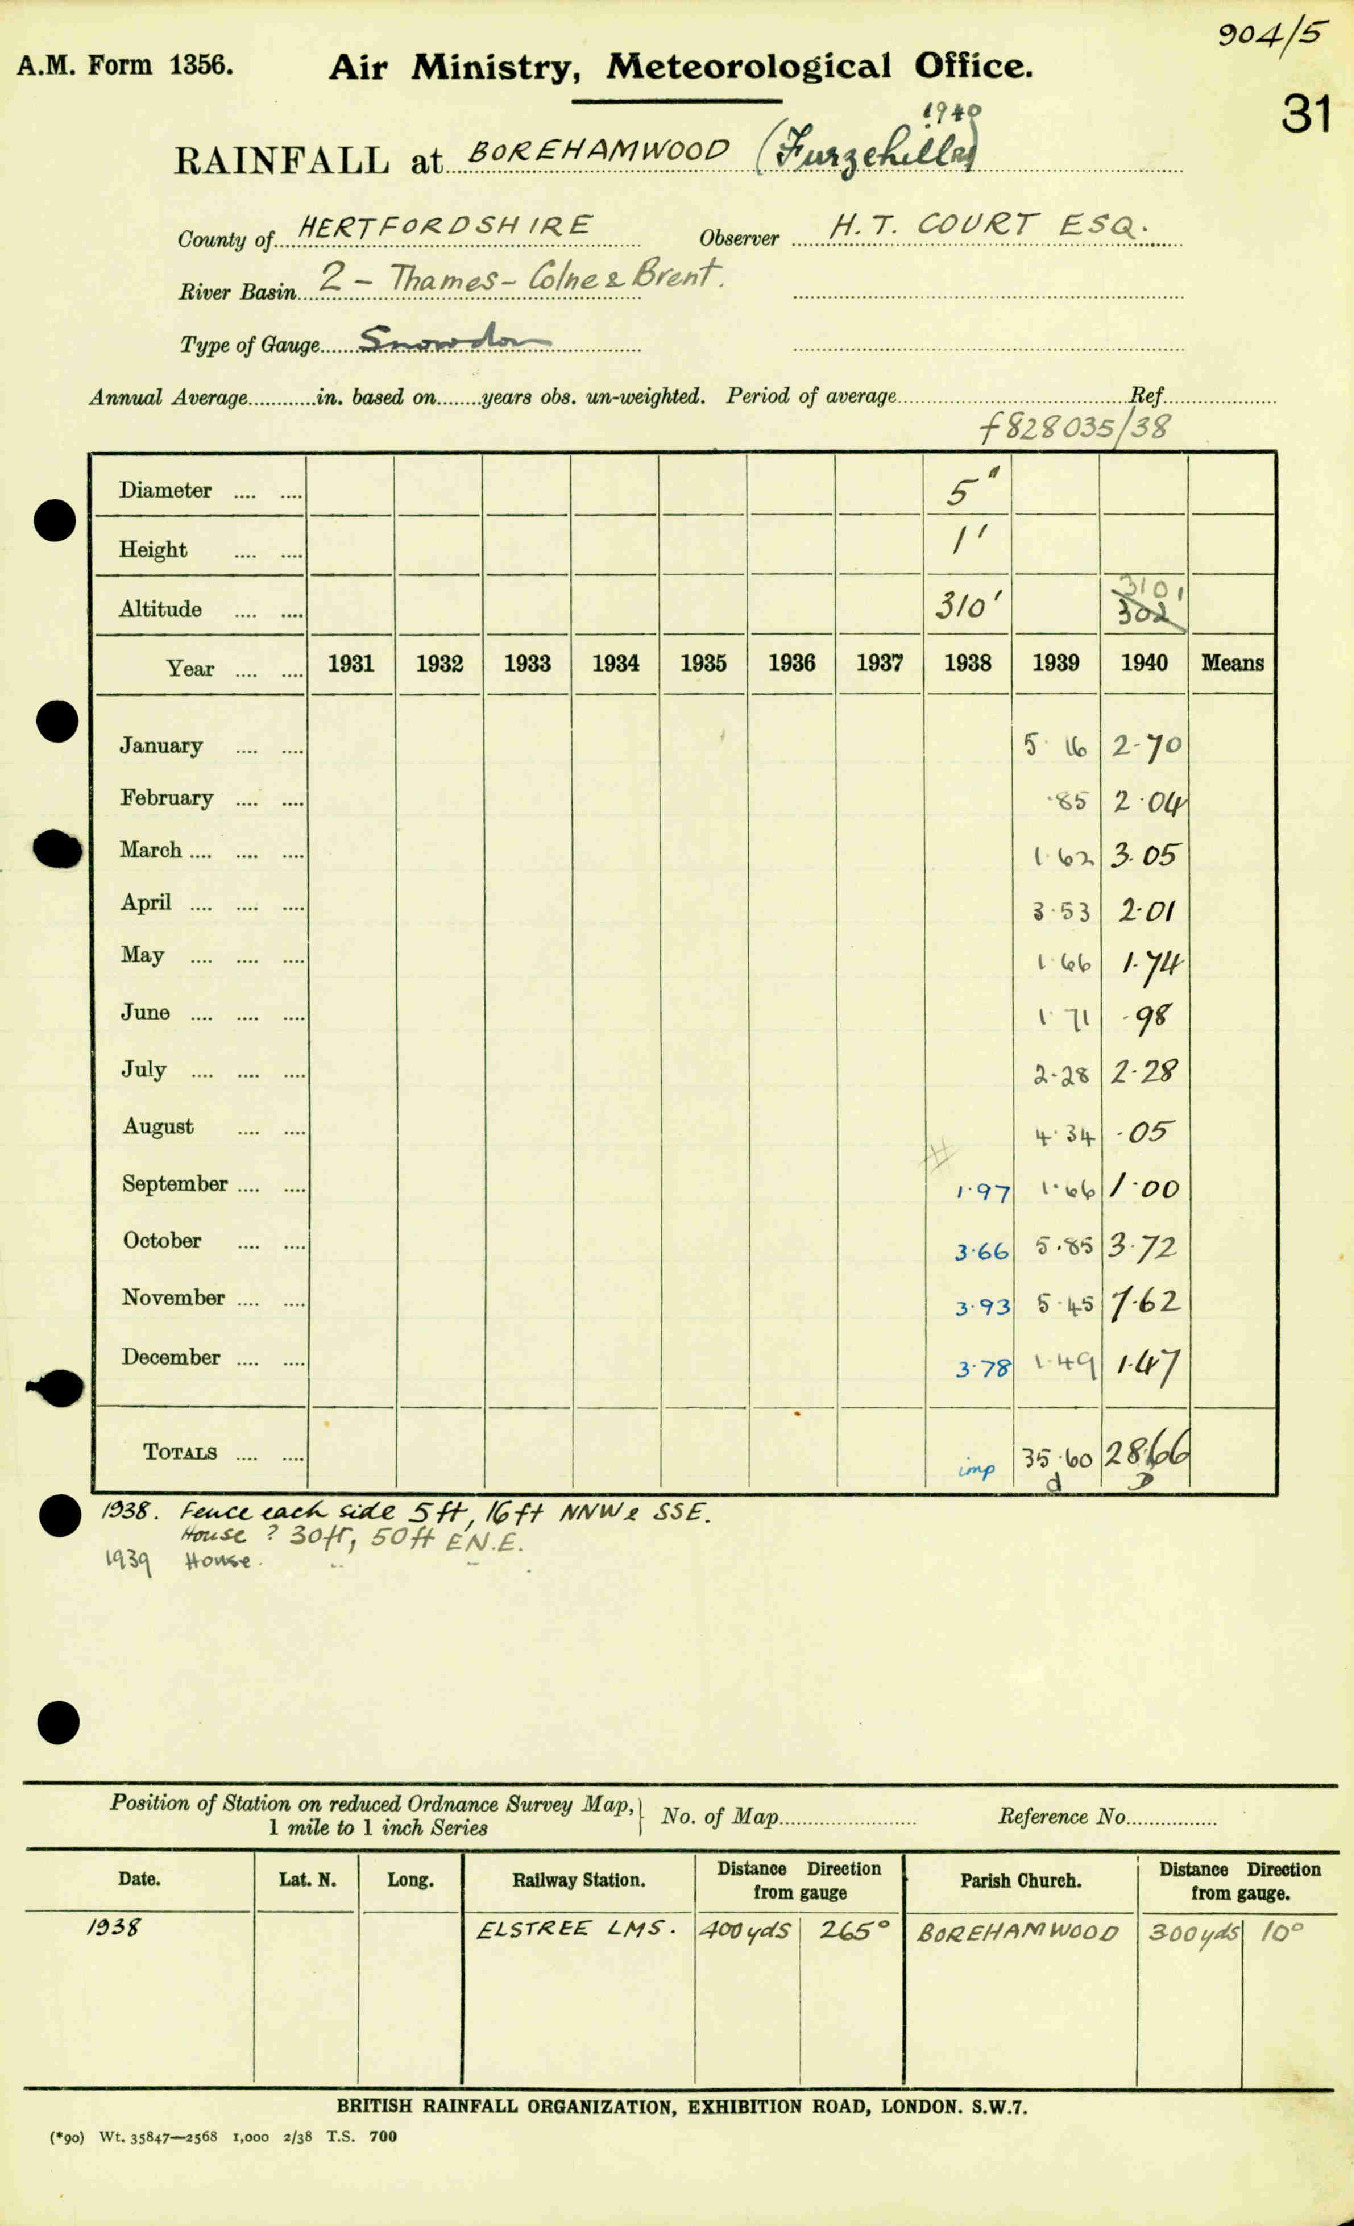 904/5
A.M. Form 1356. Air Ministry, Meteorological Office.
31
1940
RAINFALL at BOREHAMWOOD (Furzehill Rd)
County of HERTFORDSHIRE Observer H. T. COURT ESQ.
River Basin 2 - Thames - Colne & Brent.
Type of Gauge Snowdon
Annual Average............in. based on........years obs. un-weighted. Period of average................Ref.................
f828035/38
Diameter .... .... 5"
Height .... .... 1'
Altitude .... .... 310' 302 310'
Year .... .... 1931 1932 1933 1934 1935 1936 1937 1938 1939 1940 Means
January .... .... 5·16 2·70
February .... .... ·85 2·04
March .... .... .... 1·62 3·05
April .... .... .... 3·53 2·01
May .... .... .... 1·66 1·74
June .... .... .... 1·71 ·98
July .... .... .... 2·28 2·28
August .... .... 4·34 ·05
September .... .... 1·97 1·66 1·00
October .... .... 3·66 5·85 3·72
November .... .... 3·93 5·45 7·62
December .... .... 3·78 1·49 1·47
TOTALS .... .... imp 35·60 28·66
d D
1938. Fence each side 5 ft, 16 ft NNW & SSE.
House ? 30 ft, 50 ft E.N.E.
1939 House. .. .. .
Position of Station on reduced Ordnance Survey Map,
1 mile to 1 inch Series
No. of Map........................ Reference No.................
Date. Lat. N. Long. Railway Station. Distance Direction from gauge Parish Church. Distance Direction from gauge.
1938 ELSTREE LMS. 400 yds 265° BOREHAMWOOD 300 yds 10°
BRITISH RAINFALL ORGANIZATION, EXHIBITION ROAD, LONDON. S.W.7.
(*90) Wt. 35847—2568 1,000 2/38 T.S. 700